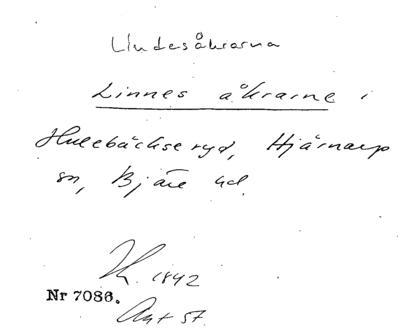 Undesåkrarna
Linnes åkrarne i
Hulebäckseryd, Hjärnarp
sn, Bjäre hd.
1842
Nr 7086.